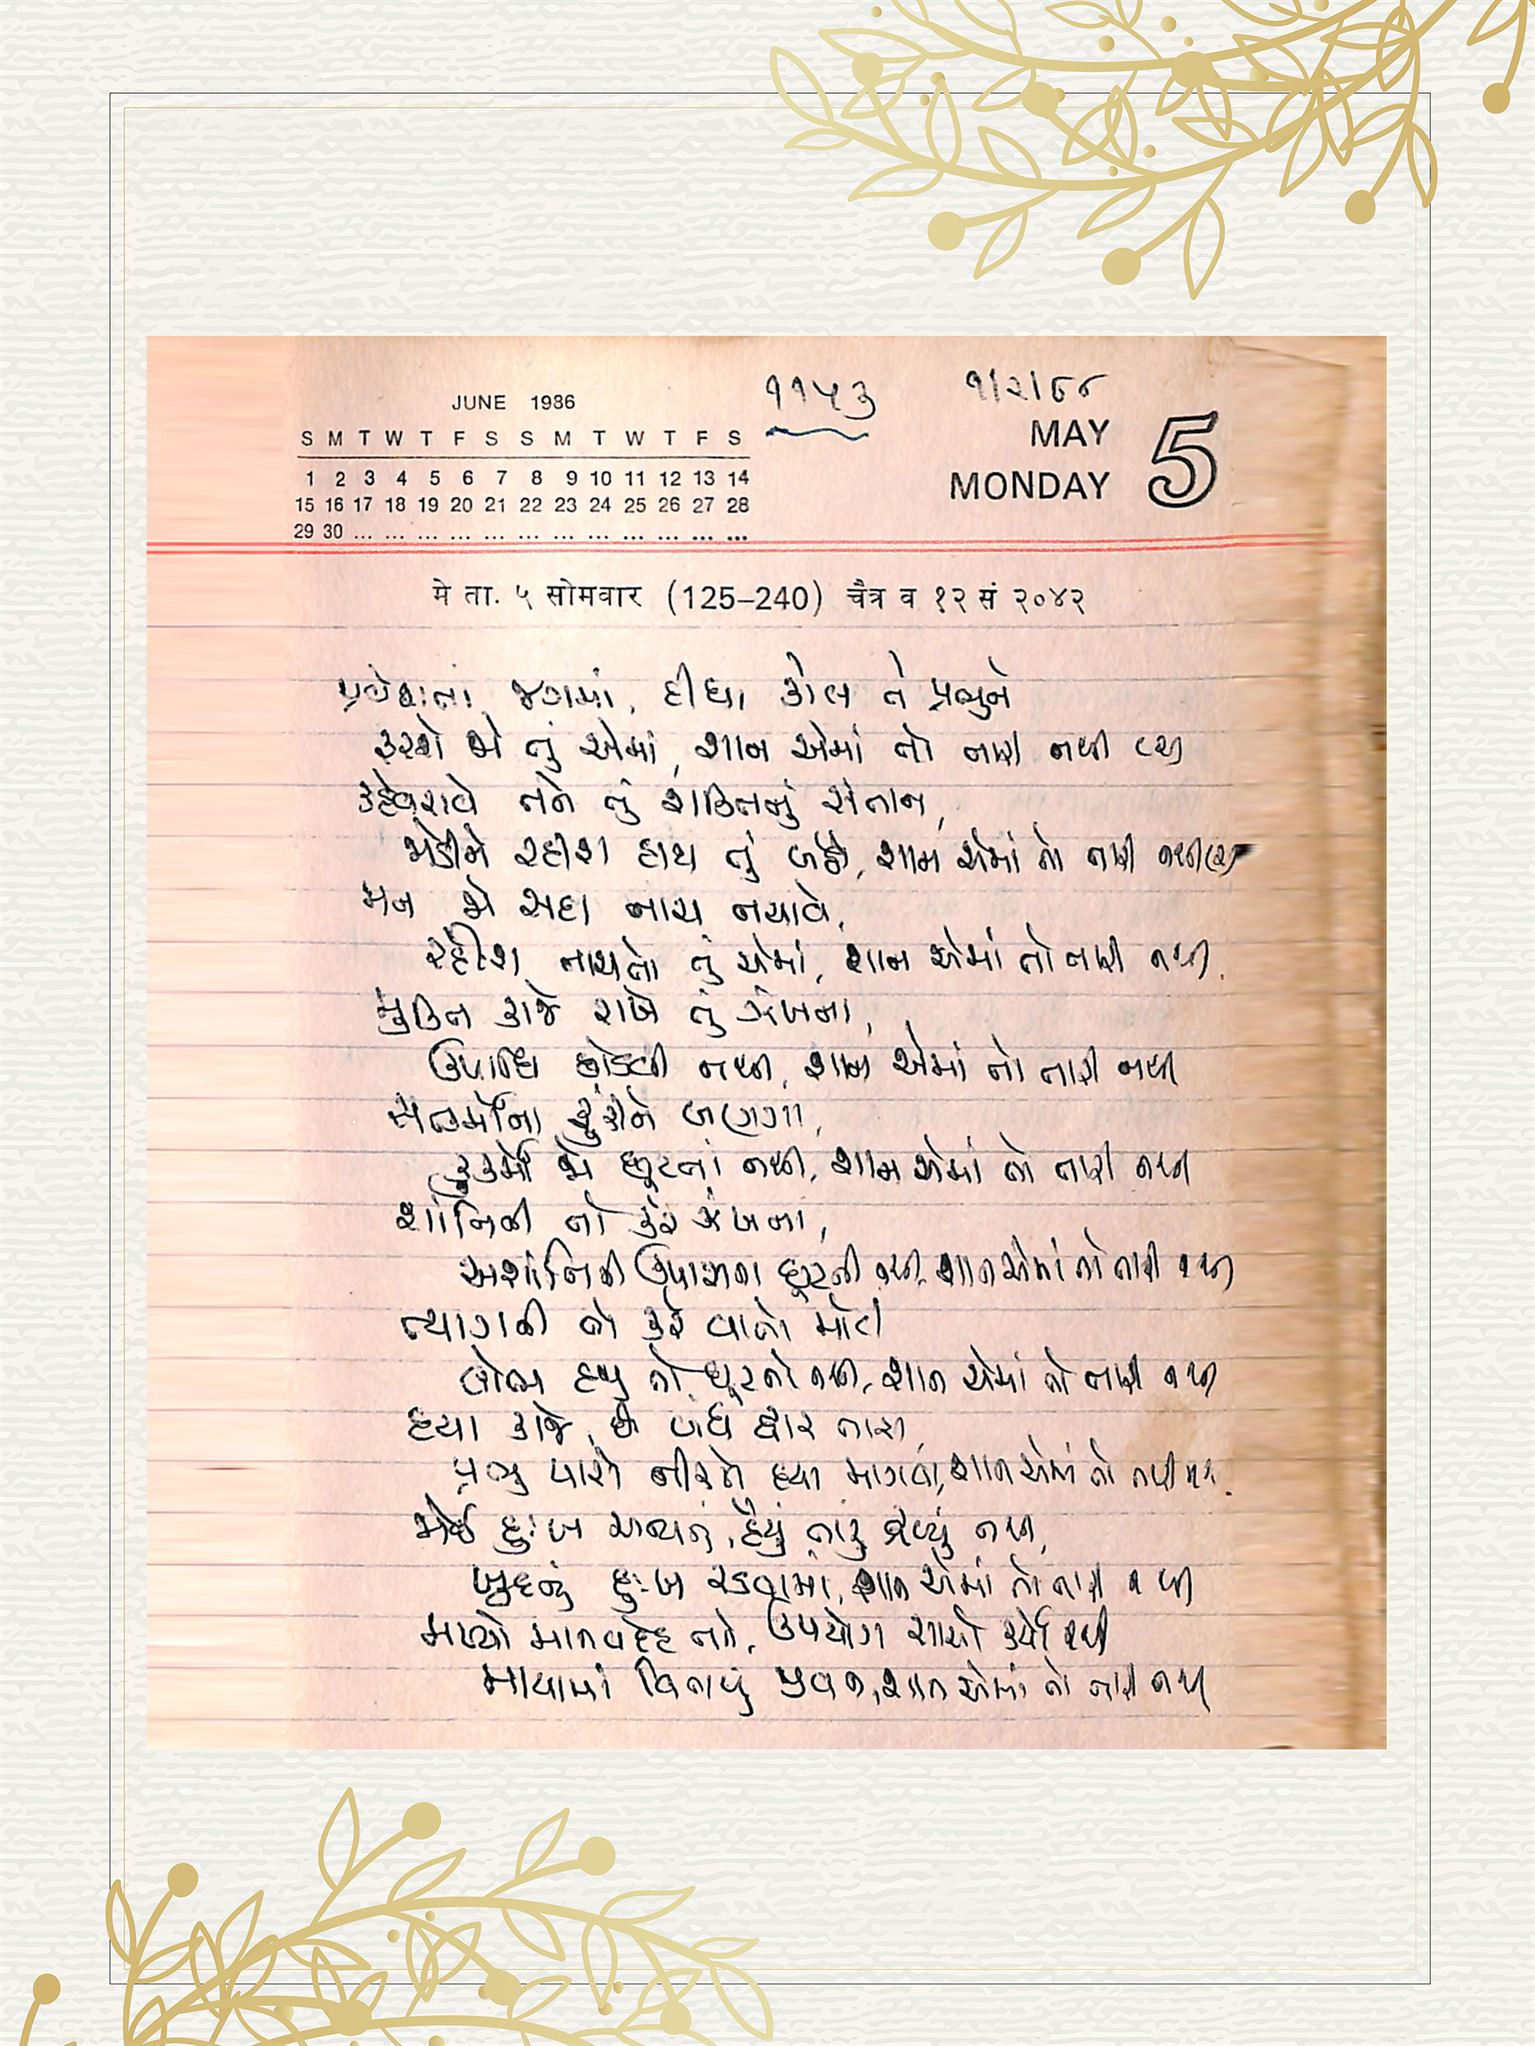 JUNE 1986
S M T W T F S S M T W T F S
1 2 3 4 5 6 7 8 9 10 11 12 13 14
15 16 17 18 19 20 21 22 23 24 25 26 27 28
29 30 ... ... ... ... ... ... ... ... ... ... ... ...
૧૧૫૩
૧/૨/૮૮
MAY
MONDAY 5
मे ता. ५ सोमवार (125–240) चैत्र व १२ सं २०४२
પ્રવેશતાં જગમાં, દીધા કોલ તેં પ્રભુને
ફરશે જો તું એમાં, શાન એમાં તો તારી નથી (૨)
કહેવરાવે તને તું શક્તિનું સંતાન,
જોડીને રહીશ હાથ તું બેઠો, શાન એમાં તો તારી નથી (૨)
મન જો સદા નાચ નચાવે,
રહીશ નાચતો તું એમાં, શાન એમાં તો તારી નથી.
મુક્તિ કાજે રાખે તું ઝંખના,
ઉપાધિ છોડવી નથી, શાન એમાં તો તારી નથી
સત્કર્મોના ફૂંકીને બણગાં,
કુકર્મો જો છૂટતાં નથી, શાન એમાં તો તારી નથી
શાંતિની તો કરે ઝંખના,
અશાંતિની ઉપાસના છૂટતી નથી, શાન એમાં તો તારી નથી
ત્યાગની તો કરે વાતો મોટી
લોભ હજુ તો છૂટતો નથી, શાન એમાં તો તારી નથી
દયા કાજે, છે બંધ દ્વાર તારા,
પ્રભુ પાસે નીકળે દયા માગવા, શાન એમાં તો તારી નથી.
જોઈ દુઃખ અન્યનું, હૈયું તારું દ્રવ્યું નથી,
ખુદનું દુઃખ રડવામાં, શાન એમાં તો તારી નથી
મળ્યો માનવદેહ તને, ઉપયોગ સાચો કર્યો નથી
માયામાં વિતાવ્યું જીવન, શાન એમાં તો તારી નથી